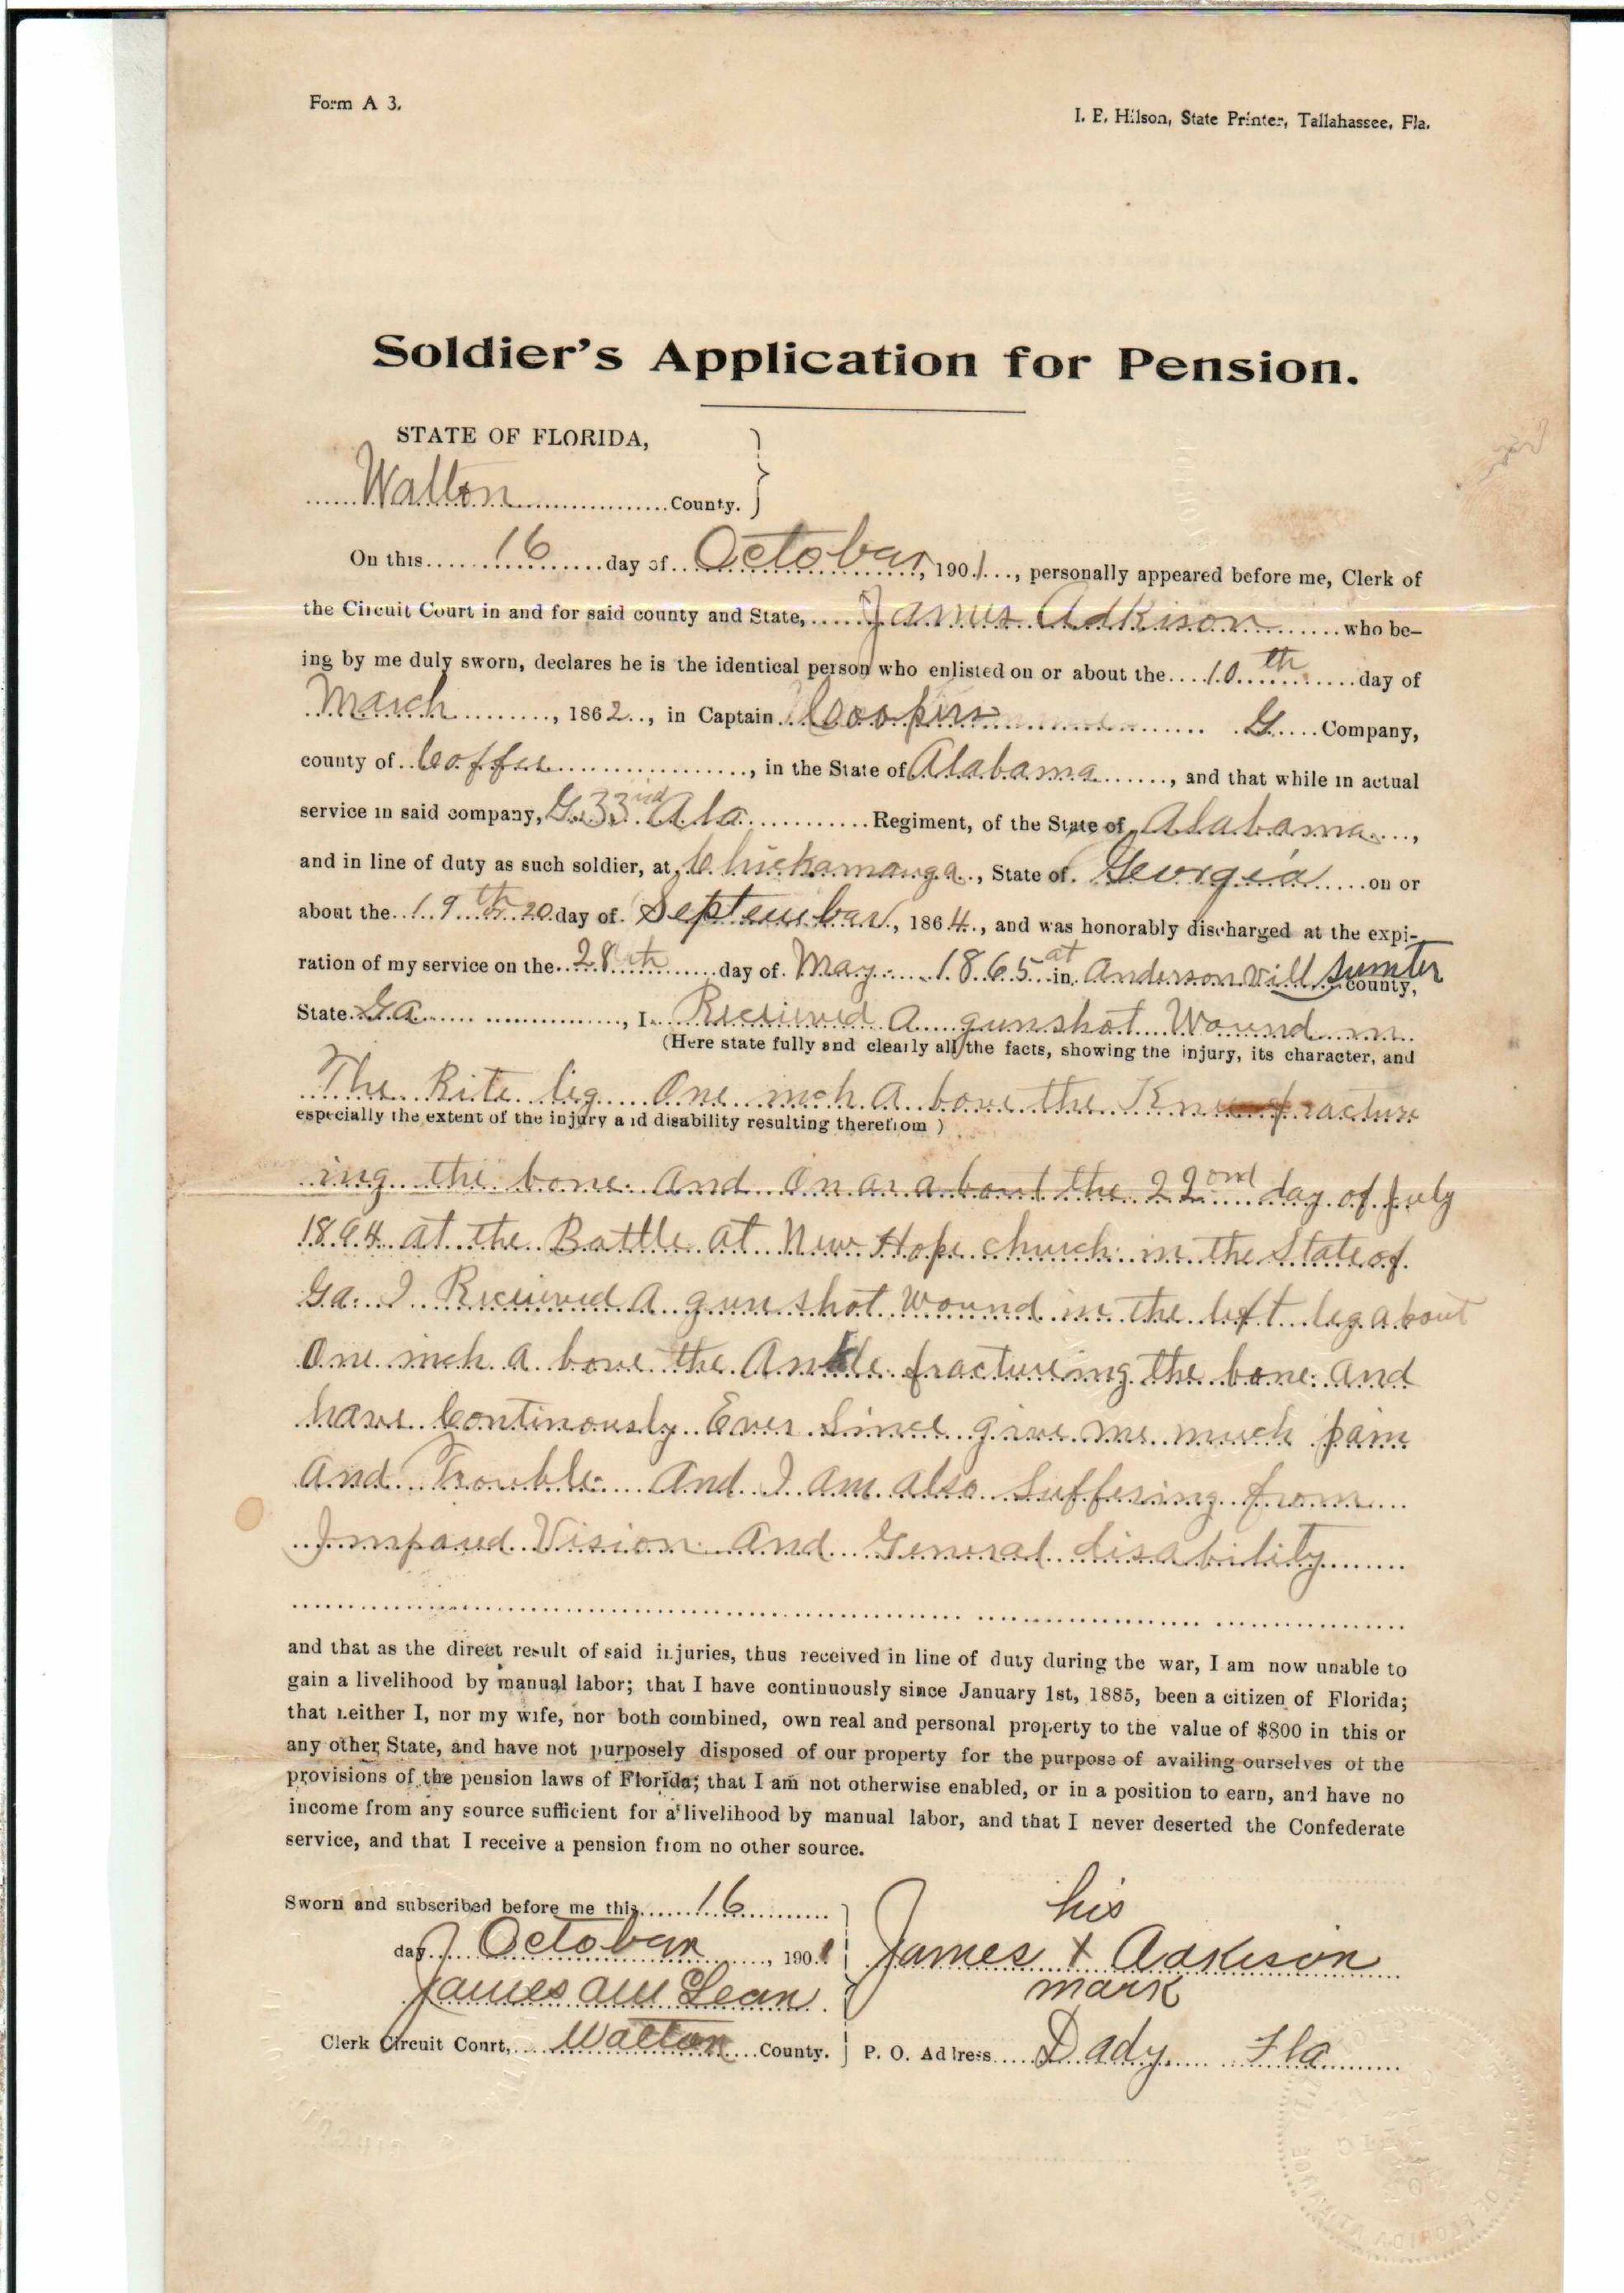 Form A 3.
I. E. Hilson, State Printer, Tallahassee, Fla.
Soldier's Application for Pension.
STATE OF FLORIDA,
Walton County.
On this 16 day of October, 1901, personally appeared before me, Clerk of
the Circuit Court in and for said county and State, James Adkison who be-
ing by me duly sworn, declares he is the identical person who enlisted on or about the 10th day of
March, 1862, in Captain G Company,
county of Coffee, in the State of Alabama, and that while in actual
service in said company, G. 33nd Ala Regiment, of the State of Alabama,
and in line of duty as such soldier, at Chickamauga, State of Georgia on or
about the 19th or 20 day of September, 1864, and was honorably discharged at the expi-
ration of my service on the 28th day of May 1865 at in Andersonvill Sumter County,
State Ga, I Recieved A gunshot Wound in
(Here state fully and clearly all the facts, showing the injury, its character, and
The Rite leg One inch A bove the Knee fractur
especially the extent of the injury and disability resulting therefrom )
ing the bone. And On or a bout the 22ond day of July
1864 at the Battle at New Hope church in the State of
Ga. I Recieved A gun shot wound in the left leg about
One inch A bove the Ankle fractureing the bone And
have Continously Ever Since give me much pain
And Trouble And I am also Suffering from
Impared Vision And General disability
and that as the direct result of said injuries, thus received in line of duty during the war, I am now unable to
gain a livelihood by manual labor; that I have continuously since January 1st, 1885, been a citizen of Florida;
that neither I, nor my wife, nor both combined, own real and personal property to the value of $800 in this or
any other State, and have not purposely disposed of our property for the purpose of availing ourselves of the
provisions of the pension laws of Florida; that I am not otherwise enabled, or in a position to earn, and have no
income from any source sufficient for a livelihood by manual labor, and that I never deserted the Confederate
service, and that I receive a pension from no other source.
Sworn and subscribed before me this 16
day October, 1901
James A McLean
Clerk Circuit Court, Walton County.
his
James X Adkison
mark
P. O. Address Dady Fla